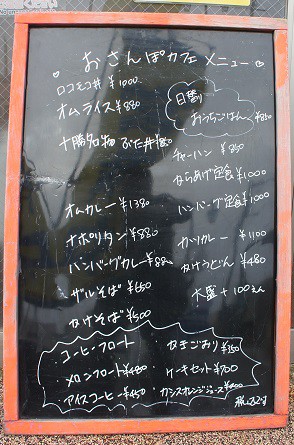 おさんぽカフェメニュー
ロコモコ丼 ¥1000
オムライス ¥880
十勝名物 ぶた丼
オムカレー ¥1380
ナポリタン ¥880
ハンバーグカレー
ザルそば ¥650
かけそば ¥500
日替り
おうちごはん ¥850
チャーハン ¥850
からあげ定食 ¥1000
ハンバーグ定食 ¥1000
カツカレー ¥1100
かけうどん ¥480
大盛 +100えん
コーヒーフロート
メロンフロート ¥480
アイスコーヒー ¥450
かきごおり ¥350
ケーキセット ¥700
カシスオレンジジュース